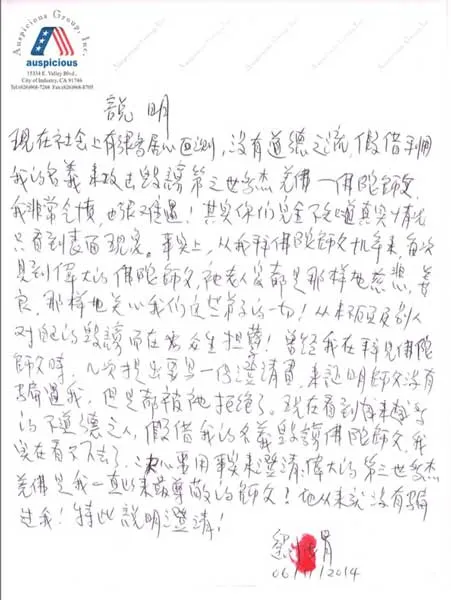 Auspicious Group, Inc.
auspicious
15334 E. Valley Blvd.,
City of Industry, CA 91746
Tel:(626)968-7288 Fax:(626)968-8705
說明
現在社会上有張居心叵測,没有道德之流,假借利用
我的名義来攻击毁謗第三世多杰羌佛—佛陀師父,
我非常气憤,也張遺憾!其实你们完全不知道真实情况
只看到表面现象。事实上,从我拜佛陀師父十几年来,每次
見到偉大的佛陀師父,祂老人家都是那样地慈悲、善
良,那样地关心我们这些弟子的一切!从来不回应别人
对祂的毁謗,而在为众生担業!曾经我在拜見佛陀
師父時,几次提出要写一份澄清書,来説明師父没有
騙过我,但是都被祂拒绝了。现在看到越来越多
的不道德之人,假借我的名義毁謗佛陀師父,我
实在看不下去了,决心要用事实来澄清:偉大的第三世多杰
羌佛是我一直以来最尊敬的師父!祂从来就没有騙
过我!特此説明澄清!
06/11/2014